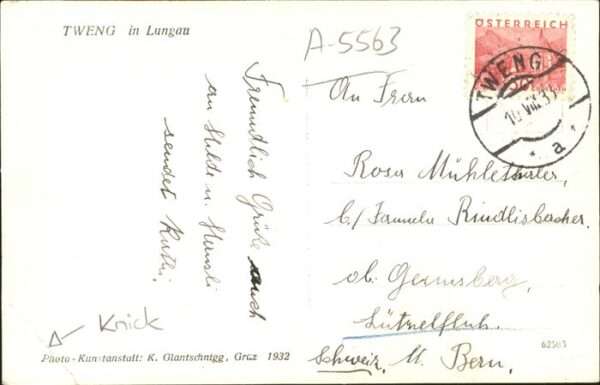 TWENG in Lungau
A-5563
ÖSTERREICH
TWENG
10.VIII.33
a
Freundlich Grüße auch
an Hilde u. Hansli
sendet Ruthi.
An Frau
Rosa Mühlethaler,
b/ Familie Rindlisbacher.
ob. Germsberg,
Lützelflüh.
Schweiz, Bern.
Knick
Photo-Kunstanstalt: K. Glantschnigg, Graz 1932